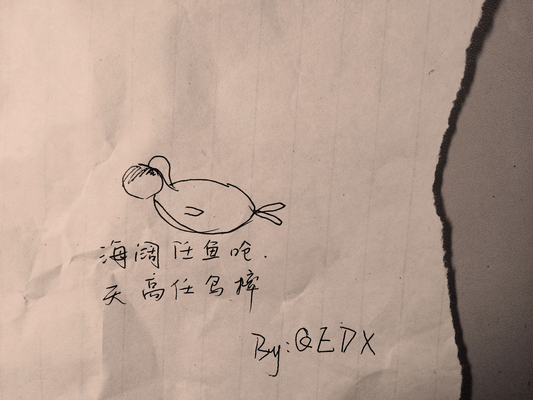 海阔任鱼呛.
天高任鸟摔
By:QEDX